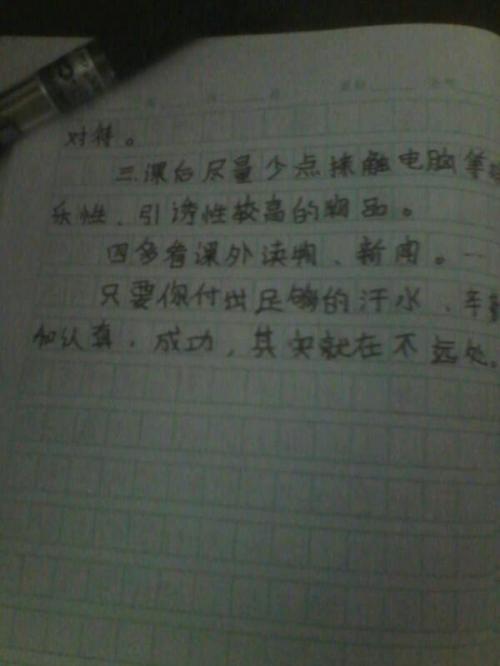 对待。
三.课后尽量少点接触电脑等
乐性、引诱性较高的物品。
四多看课外读物、新闻。一
只要你付出足够的汗水、
加认真,成功,其实就在不远处。